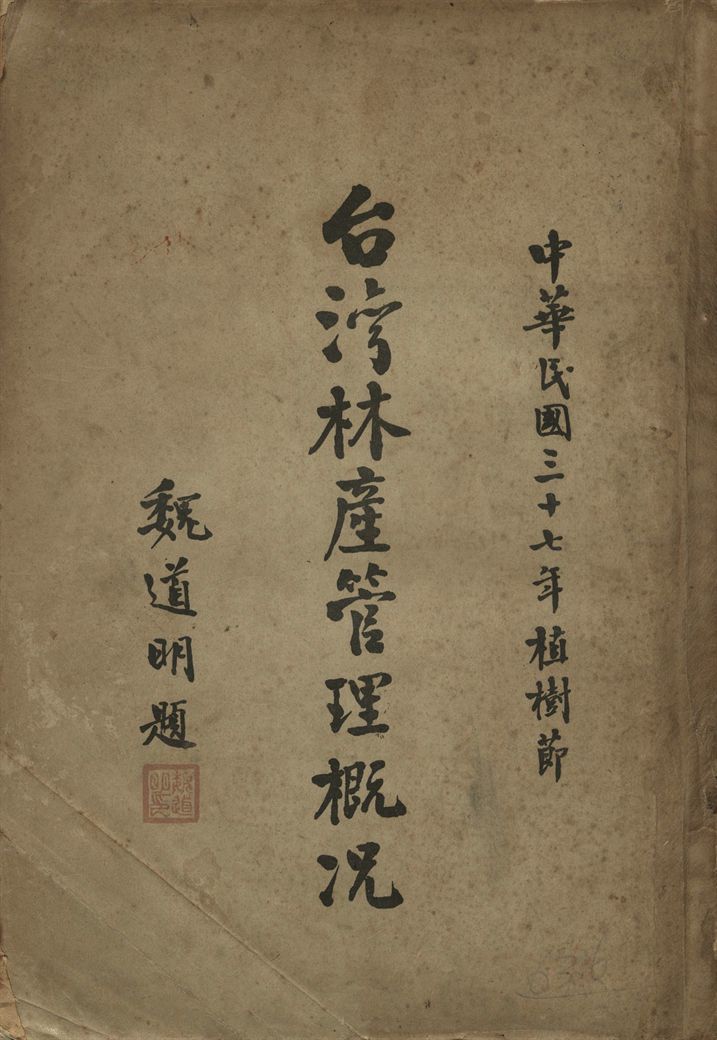 中華民國三十七年植樹節
台灣林產管理概况
魏道明題
魏道明印